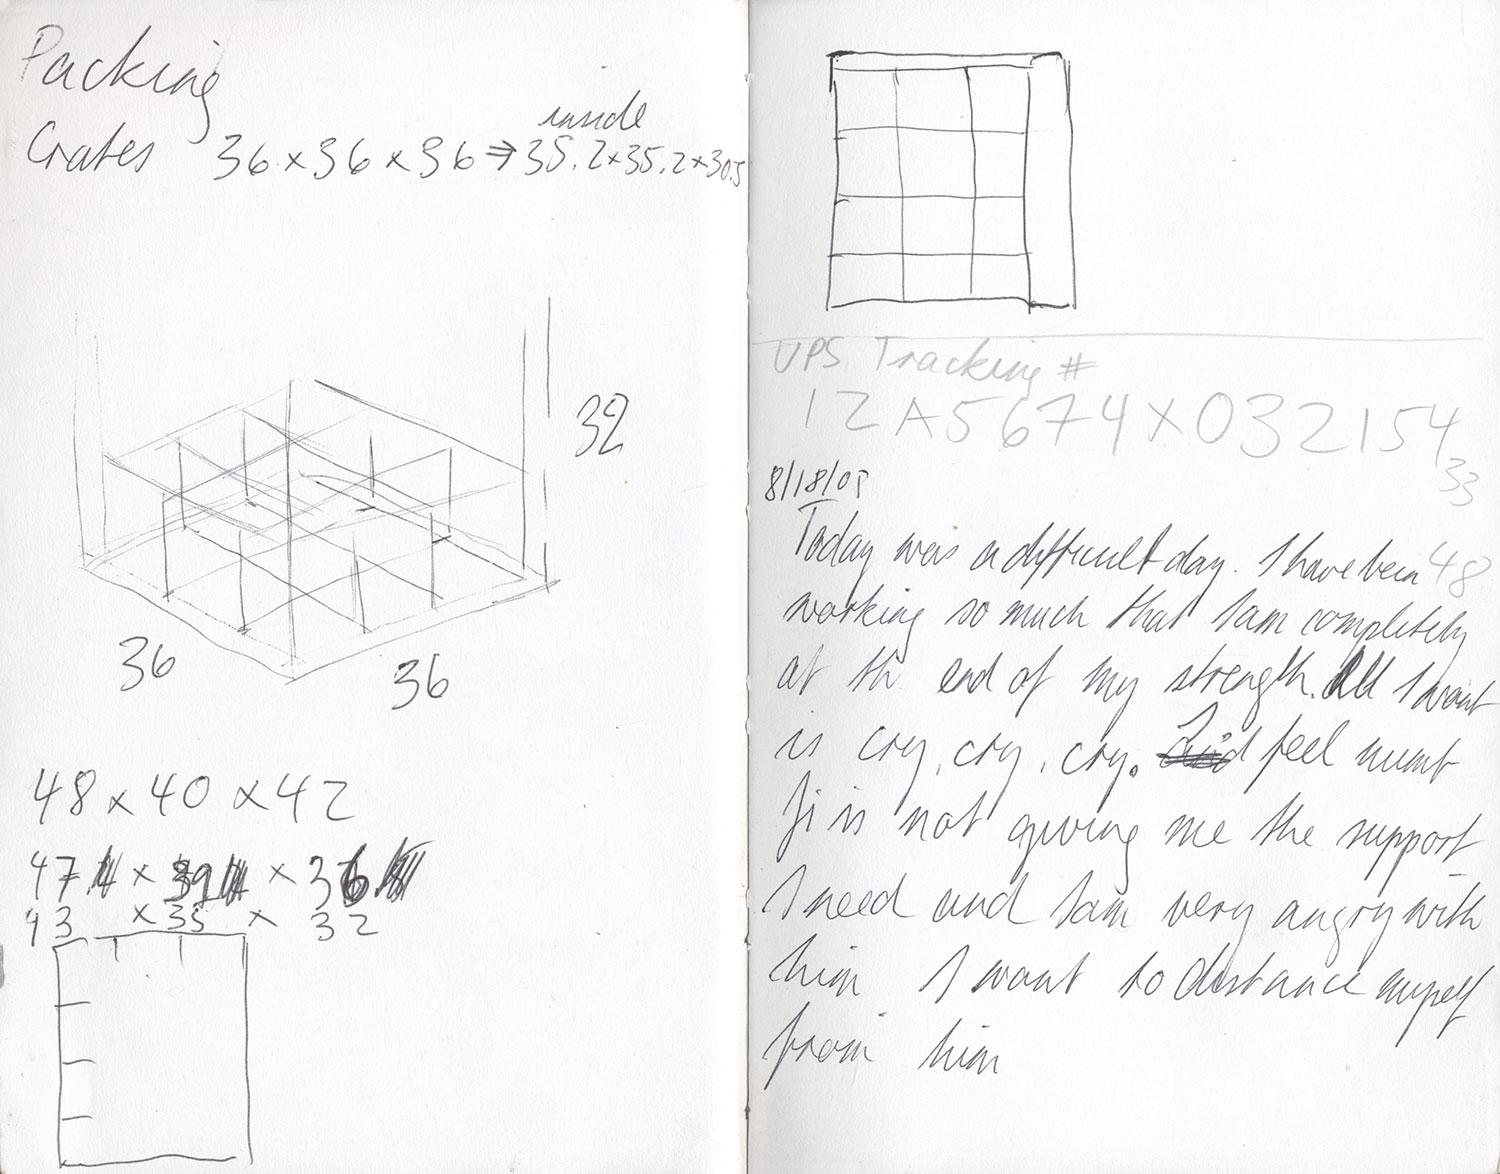 Packing
inside
Crates 36 x 36 x 36 ⇒ 35.2 x 35.2 x 30.5
32
36
36
48 x 40 x 42
47 x 39 x 36
43 x 35 x 32
UPS Tracking #
1Z A5 674 X 03 2154
33
8/18/05
Today was a difficult day. I have been
48
working so much that I am completely
at th end of my strength. All I want
is cry, cry, cry. I feel numb
is not giving me the support
I need and I am very angry with
him I want to distance myself
from him